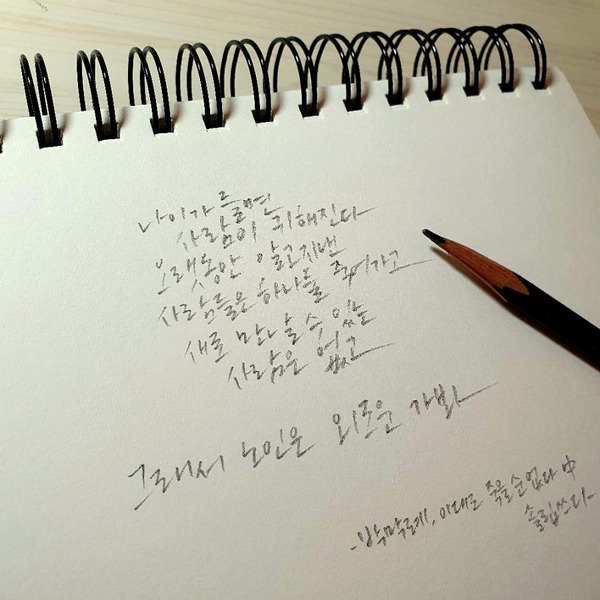 나이가 들면
사람이 귀해진다
오랫동안 알고지낸
사람들은 하나둘 죽어가고
새로 만날 수 있는
사람은 없고
그래서 노인은 외로운 가봐
-박막례, 이대로 죽을 순 없다 中
솔립쓰다